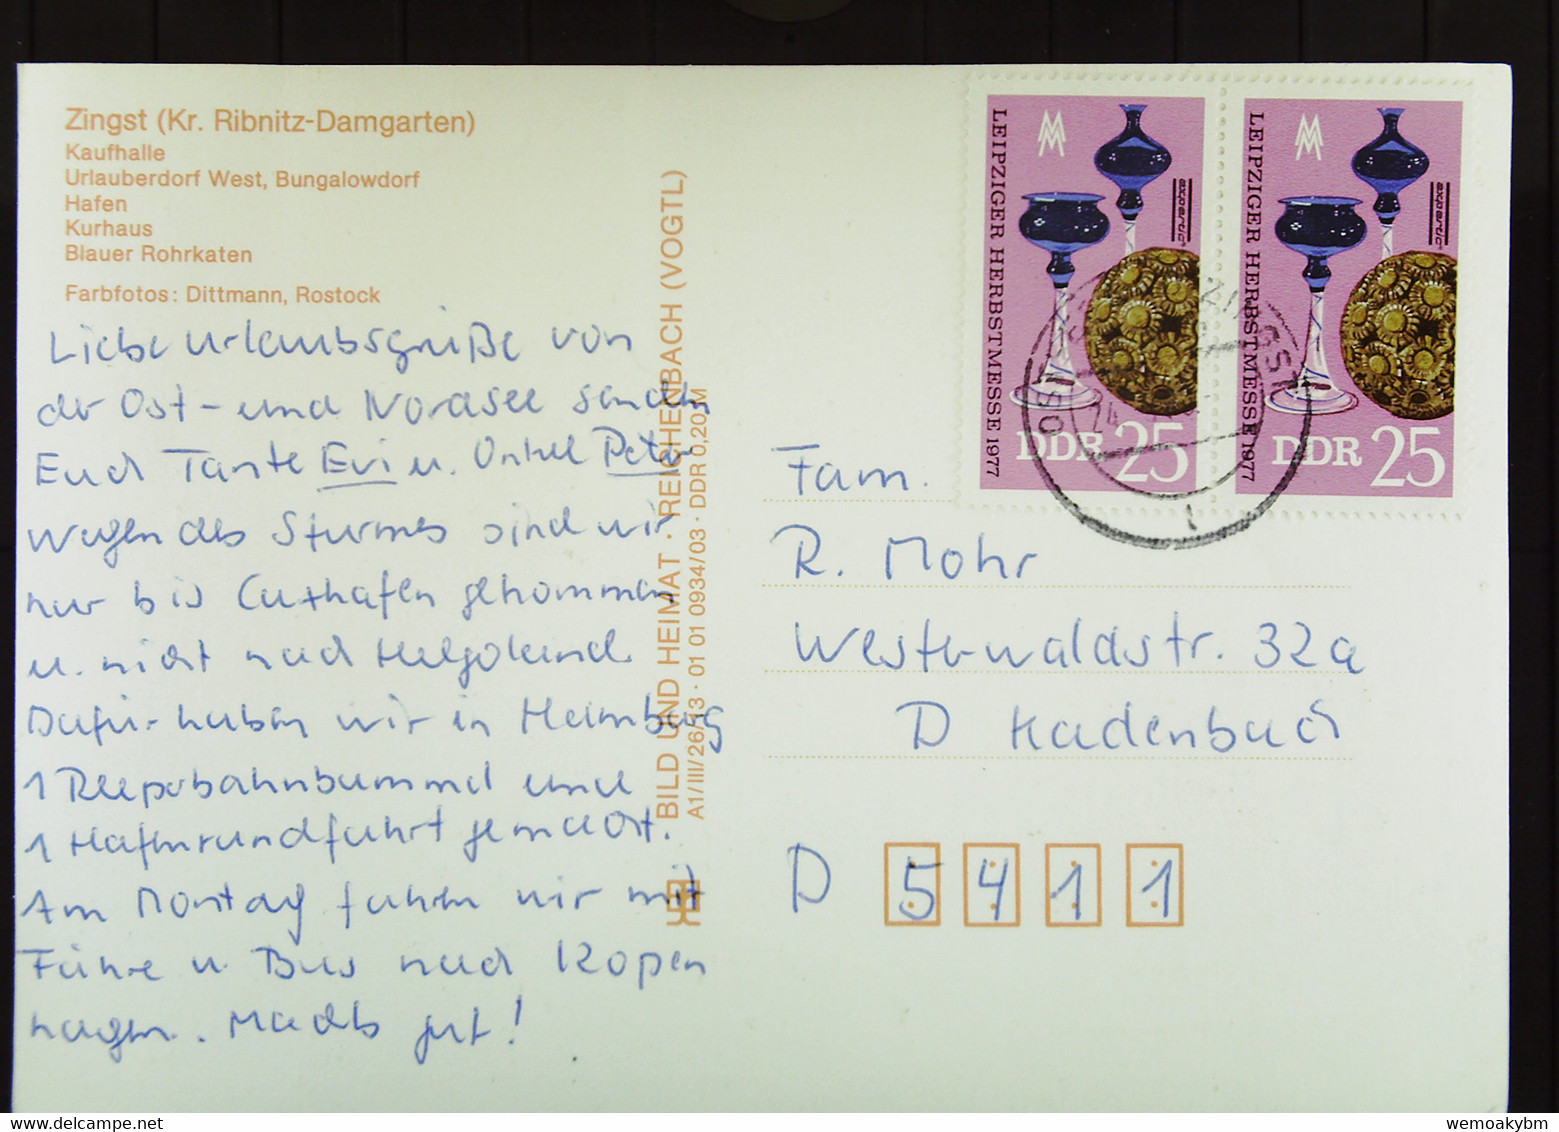 Zingst (Kr. Ribnitz-Damgarten)
Kaufhalle
Urlauberdorf West, Bungalowdorf
Hafen
Kurhaus
Blauer Rohrkaten
Farbfotos: Dittmann, Rostock
Liebe Urlaubsgrüße von
der Ost- und Nordsee senden
Euch Tante Evi u. Onkel Peter
Wegen des Sturmes sind wir
nur bis Cuxhafen gekommen
u. nicht nach Helgoland.
Dafür haben wir in Hamburg
1 Reeperbahnbummel und
1 Hafenrundfahrt gemacht.
Am Montag fahren wir mit
Fähre u. Bus nach Kopen
hagen. Machts gut!
BILD UND HEIMAT · REICHENBACH (VOGTL)
A1/III/26/13 · 01 01 0934/03 · DDR 0,20 M
LEIPZIGER HERBSTMESSE 1977
MM
expertic
DDR 25
LEIPZIGER HERBSTMESSE 1977
MM
expertic
DDR 25
ZINGST
24
1
Fam.
R. Mohr
Westerwaldstr. 32a
D Kadenbach
D 5411
www.delcampe.net
wemoakybm